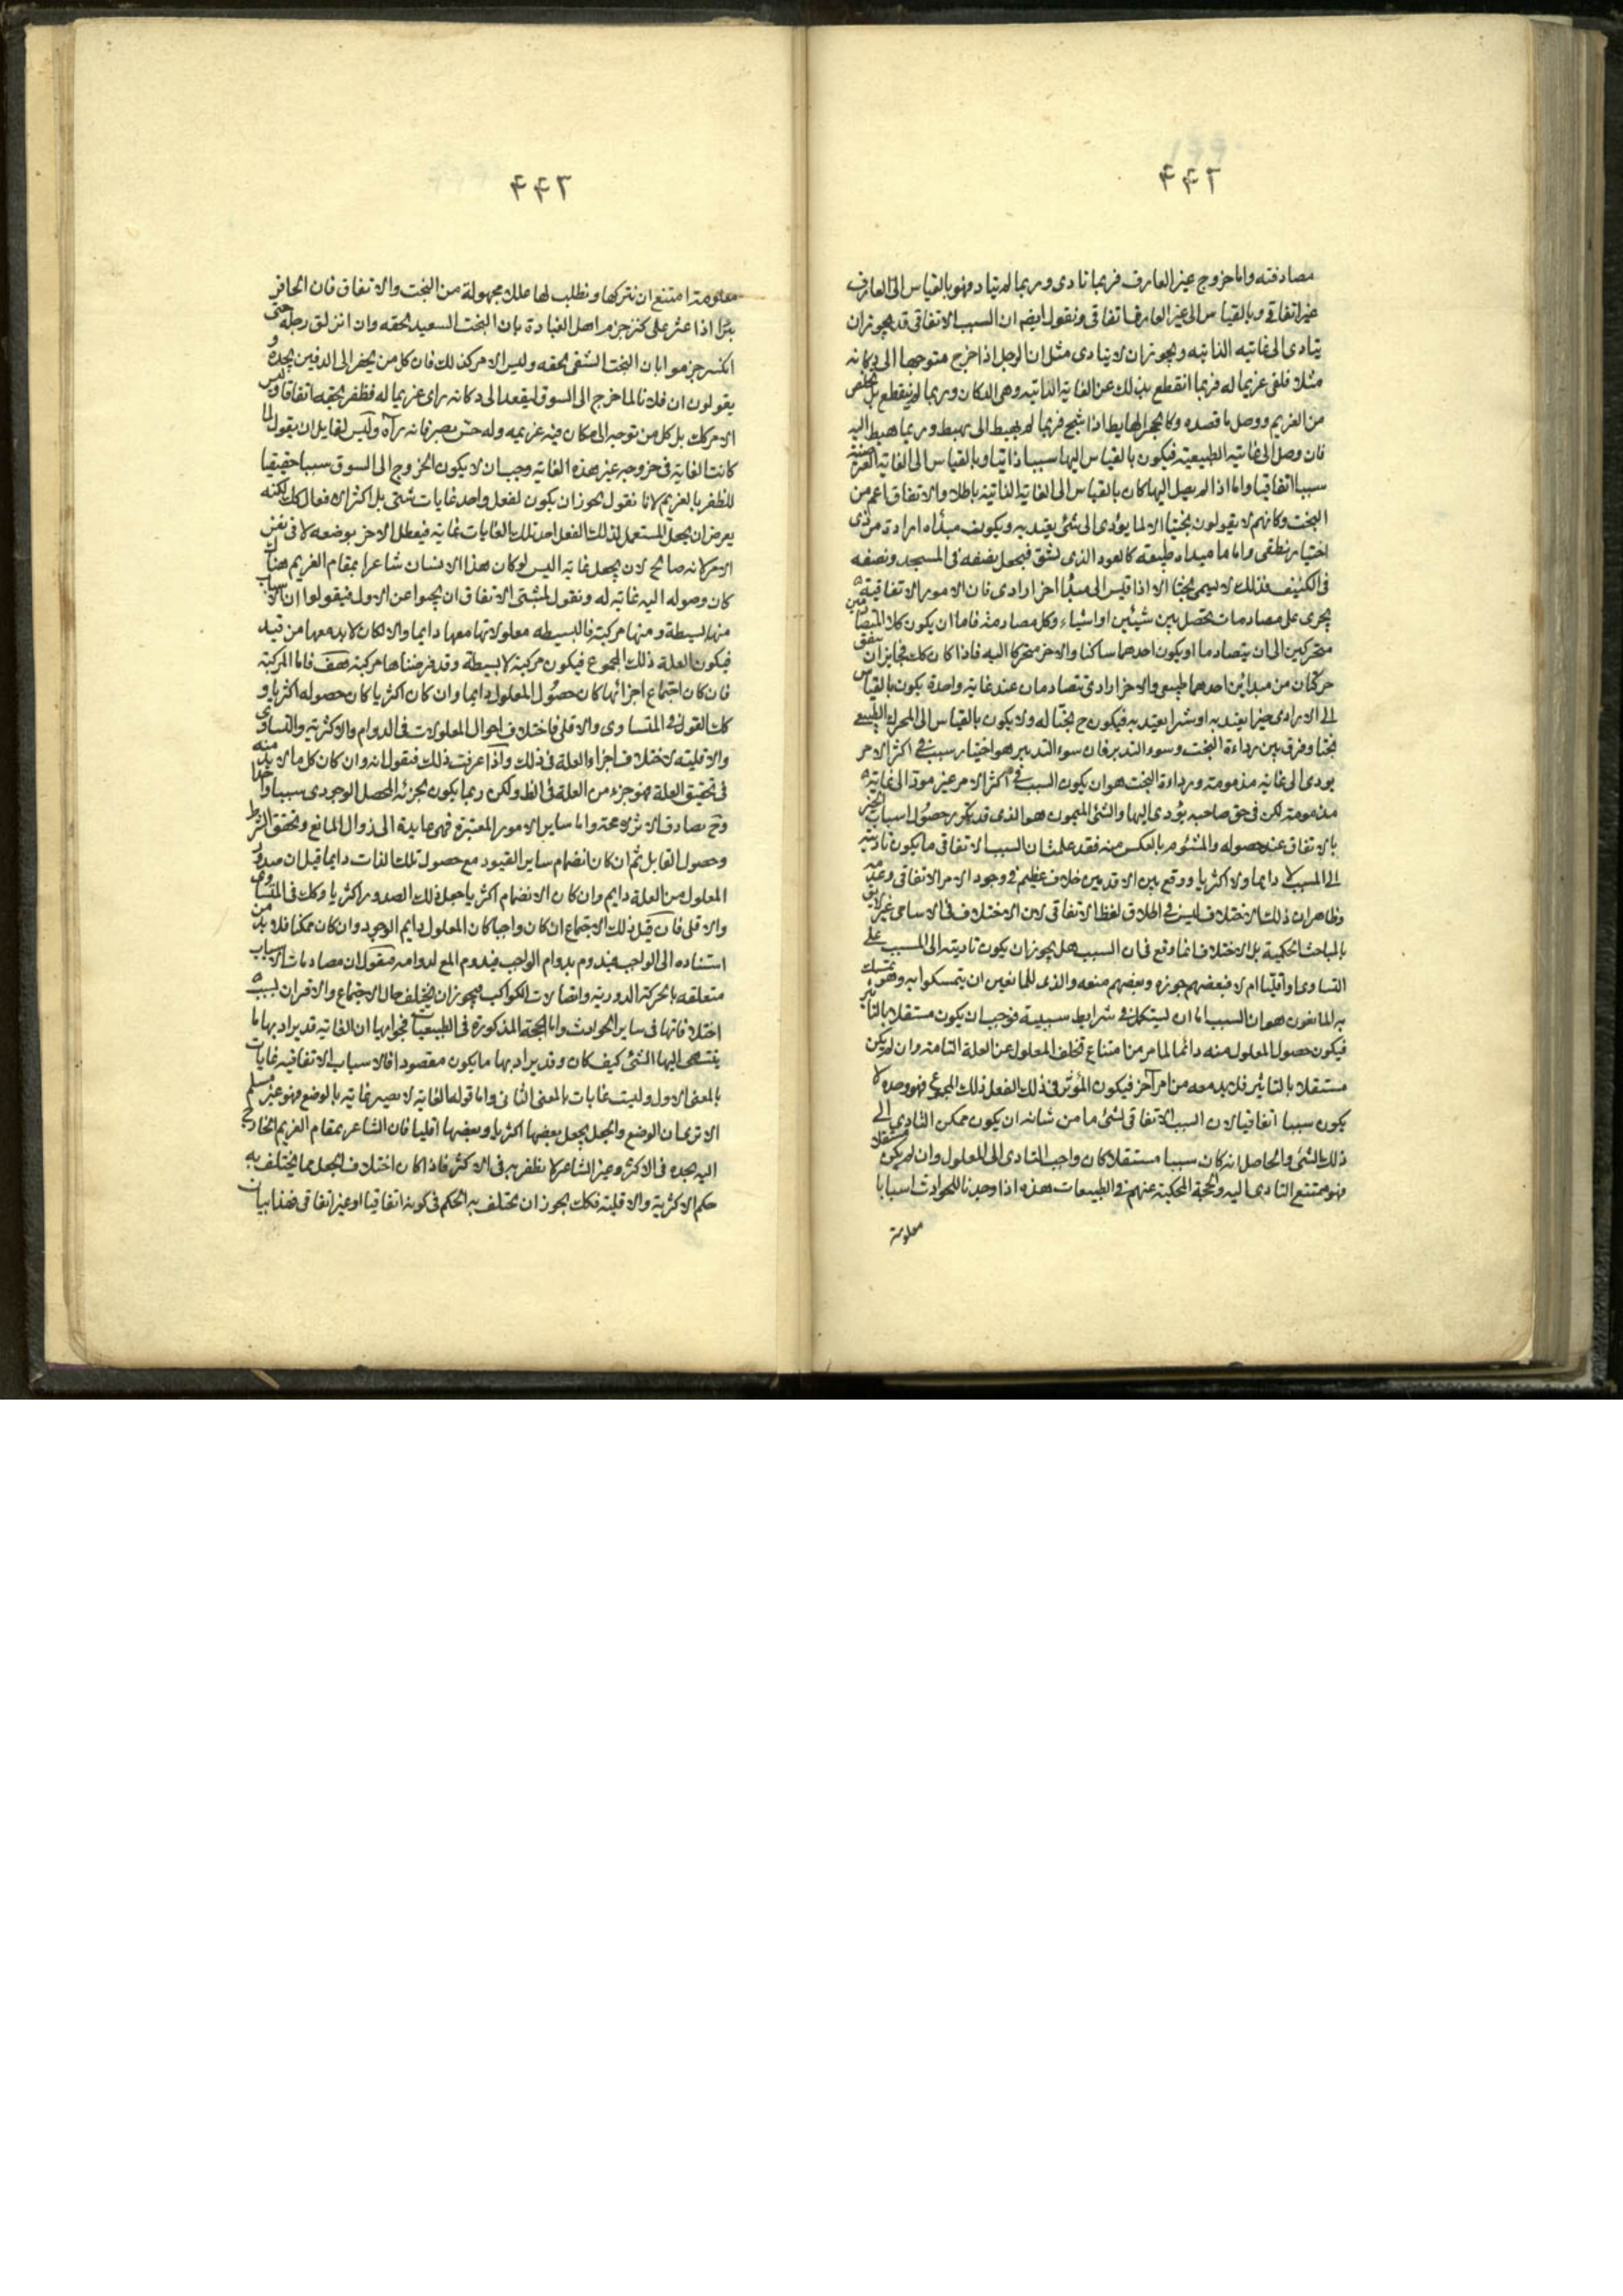 ٢٤٤
مصادفته واما خروج غير العارف فربما تادى وربما لم يتاد فهو بالقياس الى العارف
غير اتفاقى وبالقياس الى غير العارف اتفاقى ونقول ايضم ان السبب الاتفاقى قد يجوز ان
يتادى الى غايته الذاتيه ويجوز ان لا يتادى مثل ان الرجل اذا خرج متوجها الى دكانه
مثلا فلقى غريما له فربما انقطع بذلك عن الغاية الذاتيه وهى الدكان وربما لم ينقطع بل تخلص
من الغريم ووصل ما قصده وكالحجر الهابط اذا شج فربما لم يهبط الى مهبط وربما هبط اليه
فان وصل الى غايته الطبيعيته فيكون بالقياس اليها سببا ذاتيا وبالقياس الى الغاية العرضية
سببا اتفاقيا واما اذا لم يصل اليها كان بالقياس الى الغاية الذاتية باطلا والاتفاق اعم من
البخت وكانهم لا يقولون بختيا الا لما يؤدى الى شئ يعتد به ويكون مبدأه ارادة من ذى
اختيار نطقى واما ما مبداه طبيعته كالعود الذى يشق فيجعل نصفه فى المسجد ونصفه
فى الكنيف فذلك لا يسمى بختا الا اذا قيس الى مبدأ اخر ارادى فان الامور الاتفاقية
يجرى على مصادمات تحصل بين شيئين او اشياء وكل مصادمة فاما ان يكون كلا المتصادمين
متحركين الى ان يتصادما او يكون احدهما ساكنا والاخر متحركا اليه فاذا كان كك فجايز ان يتفق
حركتان من مبدائين احدهما طبيعى والاخر ارادى يتصادمان عند غاية واحدة يكون بالقياس
الى الارادى خيرا يعتد به او شرا يعتد به فيكون ح بختا له ولا يكون بالقياس الى المحرك الطبيعى
بختا وفرق بين رداءة البخت وسوء التدبير فان سوء التدبير هو اختيار سبب فى اكثر الامر
يودى الى غاية مذمومة ورداءة البخت هو ان يكون السبب فى اكثر الامر غير مود الى غاية
مذمومة لكن فى حق صاحبه يؤدى اليها والشئ الميمون هو الذى قد تكرر حصول اسباب الخير
بالاتفاق عند حصوله والمشئوم بالعكس منه فقد علمت ان السبب الاتفاقى ما يكون تاديته
الى المسبب لا دايما ولا اكثريا ووقع بين الاقدمين خلاف عظيم فى وجود الامر الاتفاقى وعدمه
وظاهر ان ذلك الاختلاف ليس فى اطلاق لفظ الاتفاقى لان الاختلاف فى الاسامى غير لايق
بالمباحث الحكمية بل الاختلاف انما وقع فى ان السبب هل يجوز ان يكون تاديته الى المسبب على
التساوى او اقليا ام لا فبعضهم جوزه وبعضهم منعه والذى للمانعين ان يتمسكوا به وهو تمسك
به المانعون هو ان السبب اما ان يستكمل فى شرايط سببية فوجب ان يكون مستقلا بالتاثير
فيكون حصول المعلول منه دائما لما مر من امتناع تخلف المعلول عن العلة التامة وان لم يكن
مستقلا بالتاثير فلا بد معه من امر آخر فيكون المؤثر فى ذلك الفعل ذلك المجموع فهو وحده لا
يكون سببا اتفاقيا لان السبب الاتفاقى لشئ ما من شانه ان يكون ممكن التادى الى
ذلك الشئ والحاصل انه كان سببا مستقلا كان واجب التادى الى المعلول وان لم يكن مستقلا
فهو ممتنع التادى اليه والحجة المحكية عنهم فى الطبيعات هذه اذا وجدنا للحوادث اسبابا
معلومة
٢٤٤
معلومة امتنع ان نتركها ونطلب لها علل مجهولة من البخت والاتفاق فان الحافر
بئرا اذا عثر على كنز جزم اهل الغباوة بان البخت السعيد لحقه وان انزلق رجله حتى
انكسر جزموا بان البخت الشقى لحقه وليس الامر كذلك فان كل من يحفر الى الدفين يجده و
يقولون ان فلانا لما خرج الى السوق ليقعد الى دكانه راى غريما له فظفر بحقه اتفاقا وليس
الامر كك بل كل من توجه الى مكان فيه غريمه وله حس بصر فانه يرآه وليس لقايل ان يقول لما
كانت الغاية فى خروجه غير هذه الغاية وجب ان لا يكون الخروج الى السوق سببا حقيقيا
للظفر بالغريم لانا نقول يجوز ان يكون لفعل واحد غايات شتى بل اكثر الافعال كك لكنه
يعرض ان يجعل المستعمل لذلك الفعل احد تلك الغايات غاية فيعطل الاخر بوضعه لا فى نفس
الامر كانه صالح لان يجعل غاية اليس لو كان هذا الانسان شاعرا بمقام الغريم هناك
كان وصوله اليه غاية له ونقول لمثبتى الاتفاق ان يجيبوا عن الاول فيقولوا ان الاسباب
منها بسيطة ومنها مركبة فالبسيطه معلولاتها معها دايما والا لكان لا بد معها من قيد
فيكون العلة ذلك المجموع فيكون مركبة لا بسيطة وقد فرضناها مركبة هف فاما المركبة
فان كان اجتماع اجزائها كان حصول المعلول دايما وان كان اكثريا كان حصوله اكثريا و
كك القول فى المتساوى والاقلى فاختلاف احوال المعلولات فى الدوام والاكثرية والتساوى
والاقلية لاختلاف اجزاء العلة فى ذلك واذا عرفت ذلك فنقول انه وان كان كل ما لا بد منه
فى تحقيق العلة فهو جزء من العلة فى الظ ولكن ربما يكون لجزئه المحصل الوجودى سببا واحدا
وح يصادف الاثر لا محة واما ساير الامور المعتبرة فهى عايدة الى زوال المانع وتحقق الشرط
وحصول القابل ثم ان كان انضمام ساير القيود مع حصول تلك الذات دايما قيل ان صدور
المعلول من العلة دايم وان كان الانضمام اكثريا جعل ذلك الصدور اكثريا وكك فى المتساوى
والاقلى فان قيل ذلك الاجتماع ان كان واجبا كان المعلول دايم الوجود وان كان ممكنا فلا بد من
استناده الى الواجب فيدوم بدوام الواجب فيدوم المع لدوامه فنقول ان مصادمات الاسباب
متعلقه بالحركة الدورية واتصالات الكواكب فيجوز ان يختلف حال الاجتماع والاقتران بسبب
اختلافاتها فى ساير الحوادث واما الحجة المذكورة فى الطبيعيات فجوابها ان الغاية قد يراد بها ما
ينتهى اليها الشئ كيف كان وقد يراد بها ما يكون مقصودا فالاسباب الاتفاقيه غايات
بالمعنى الاول وليست غايات بالمعنى الثانى واما قوله الغاية لا يصير غاية بالوضع فهو غير مسلم
الا ترى ان الوضع والجعل يجعل بعضها اكثريا وبعضها اقليا فان الشاعر بمقام الغريم الخارج
اليه يجده فى الاكثر وغير الشاعر لا يظفر به فى الاكثر فاذا كان اختلاف الجعل مما يختلف به
حكم الاكثرية والاقلية فكك يجوز ان يختلف به الحكم فى كونه اتفاقيا او غير اتفاقى فهذا بيان